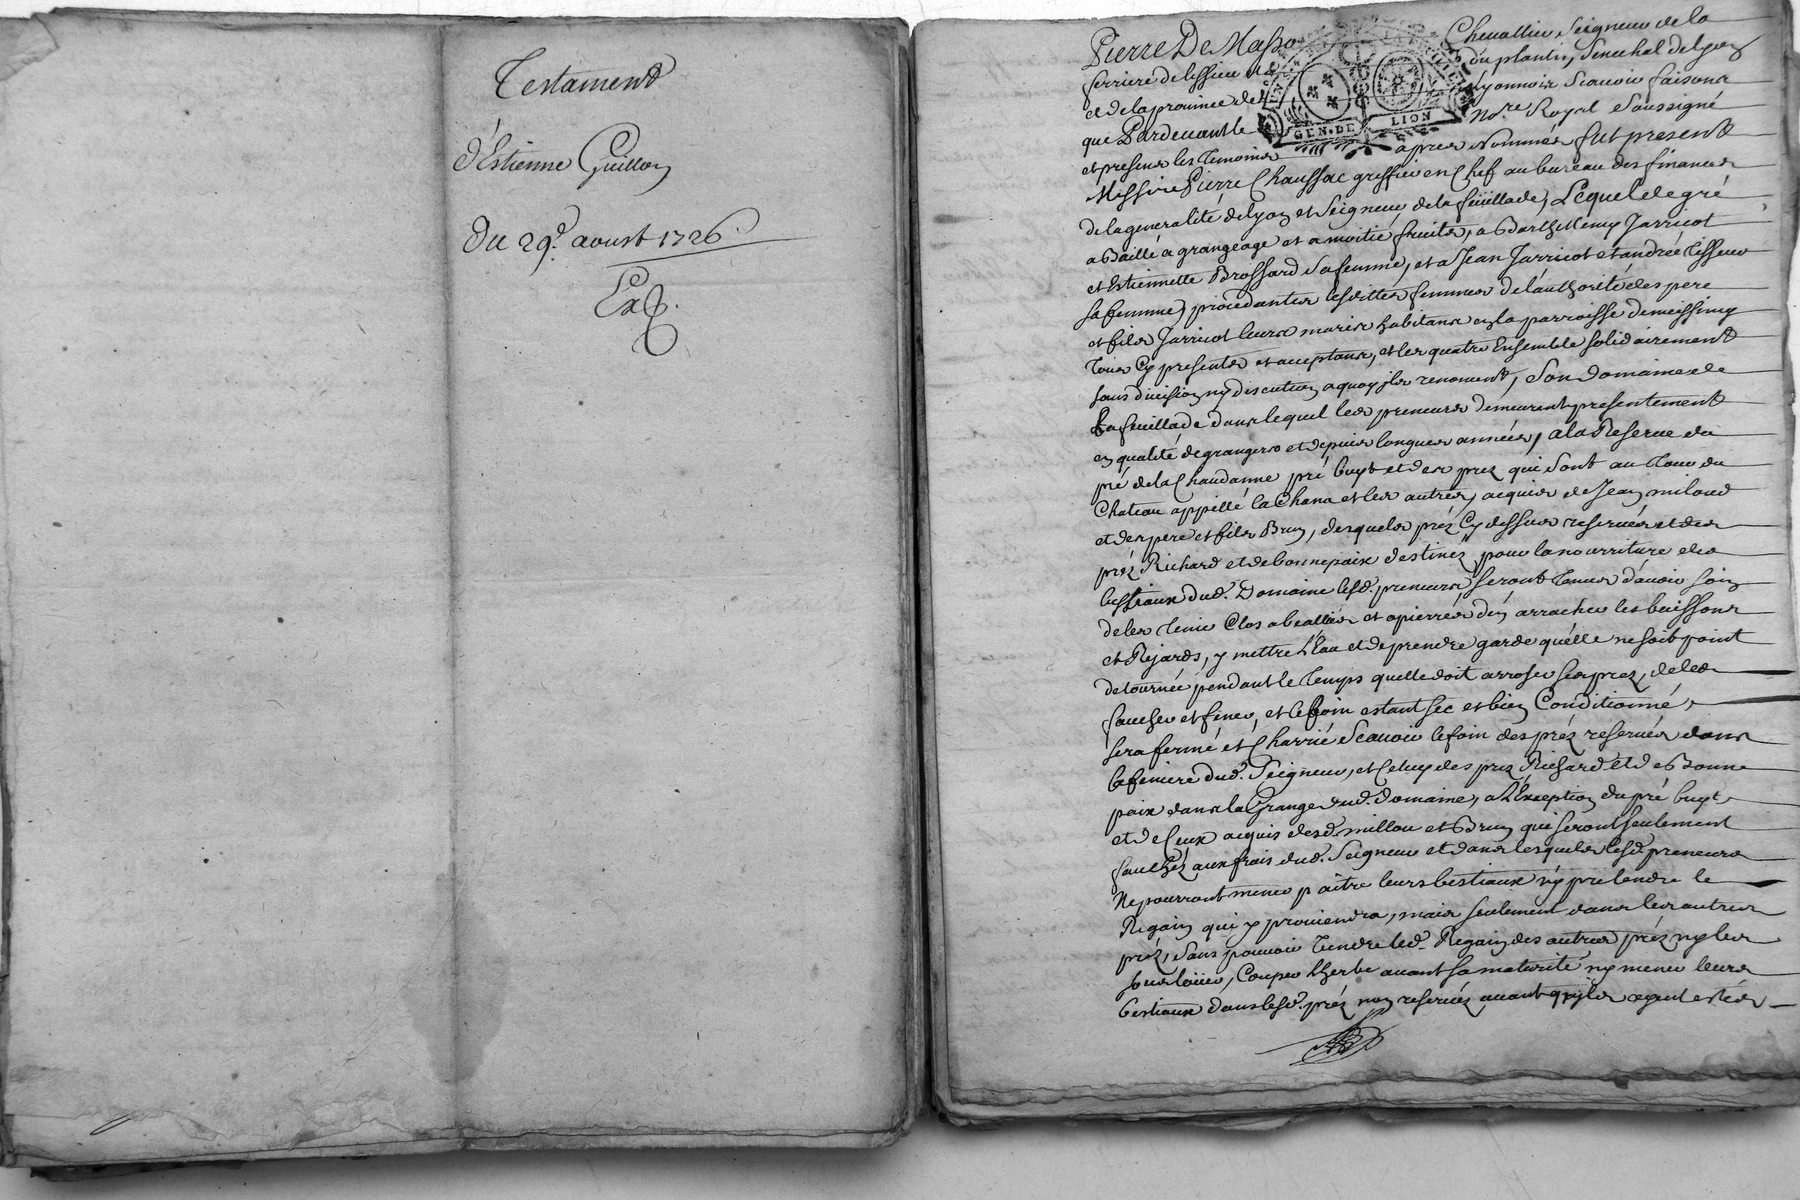 Testament
d'Estienne Guillon
Du 29.e aoust 1726
Exp.
Pierre De Masso Chevallier Seigneur de la
ferriere de lissieu du plantin, Senechal de Lyon
et de la province de Lyonnois Scavoir faisons
que Pardevant le No.re Royal Soussigné
GEN. DE LION
et presens les Temoins apres Nommés fut present
Messire Pierre Chaussac greffier en Chef au bureau des finances
de la generalité de Lyon et Seigneur de la feüillade, Lequel de gré
a Baillé a grangeage et a moitié fruits, a Barthelemy Jarricot
et Estiennette Brossard Sa femme, et a Jean Jarricot et andrée Tisseur
Sa femme, procedantes lesdittes femmes de l'authorité desd pere
et fils Jarricot leurs maris habitans en la parroisse de meissimy
Tous Cy presents et acceptans, et les quatre Ensemble solidairement
sans division ny discution a quoy ils renoncent, Son Domaine de
La feuillade dans lequel les preneurs demeurent presentement
en qualité de grangers et depuis longues années, a la Reserve du
pré de la Chaudanne pré buyt et des prez qui Sont au Tour du
Chateau appellé la Chana et les autres, acquis de Jean miloud
et des pere et fils Brun, desquels préz Cy dessus reservés et des
préz Richard et de bonnepaix destinez pour la nourriture des
bestiaux dud. Domaine lesd. preneurs seront Tenus d'avoir soin
de les Tenir Clos abealliés et apierrés d'en arracher les buissons
et Rejards, y mettre l'Eau et de prendre garde quelle ne soit point
detournée pendant le Temps quelle doit arroser les prez, de les
faucher et fener, et le foin estant sec et bien Conditionné
sera fermé et Charrié Scavoir le foin des préz reservés dans
la feniere dud. Seigneur, et Celuy des prez Richard et de Bonne
paix dans la Grange dud. Domaine, a l'Exception du pré buyt
et de Ceux acquis desd. millou et Brun qui seront seulement
fauchéz aux frais dud. Seigneur et dans lesquels lesd. preneurs
Ne pourront mener paitre leurs bestiaux ny pretendre le
Regain qui y proviendra, mais seulement dans les autres
préz, Sans pouvoir Vendre led. Regain des autres préz ny les
sous loüer, Couper l'herbe avant sa maturité ny mener leurs
bestiaux dans lesd. préz non reservéz avant qu'ils ayent estés